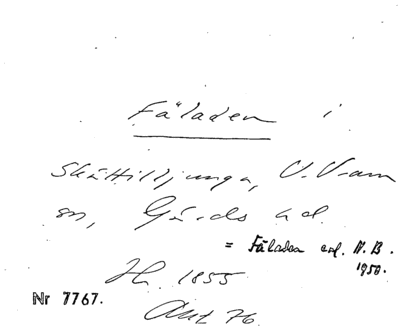 Fäladen i
Skättilljunga, V. Vram
sn, Gärds hd.
= Fäladen enl. N.B.
1950.
Hn. 1855
Nr 7767.